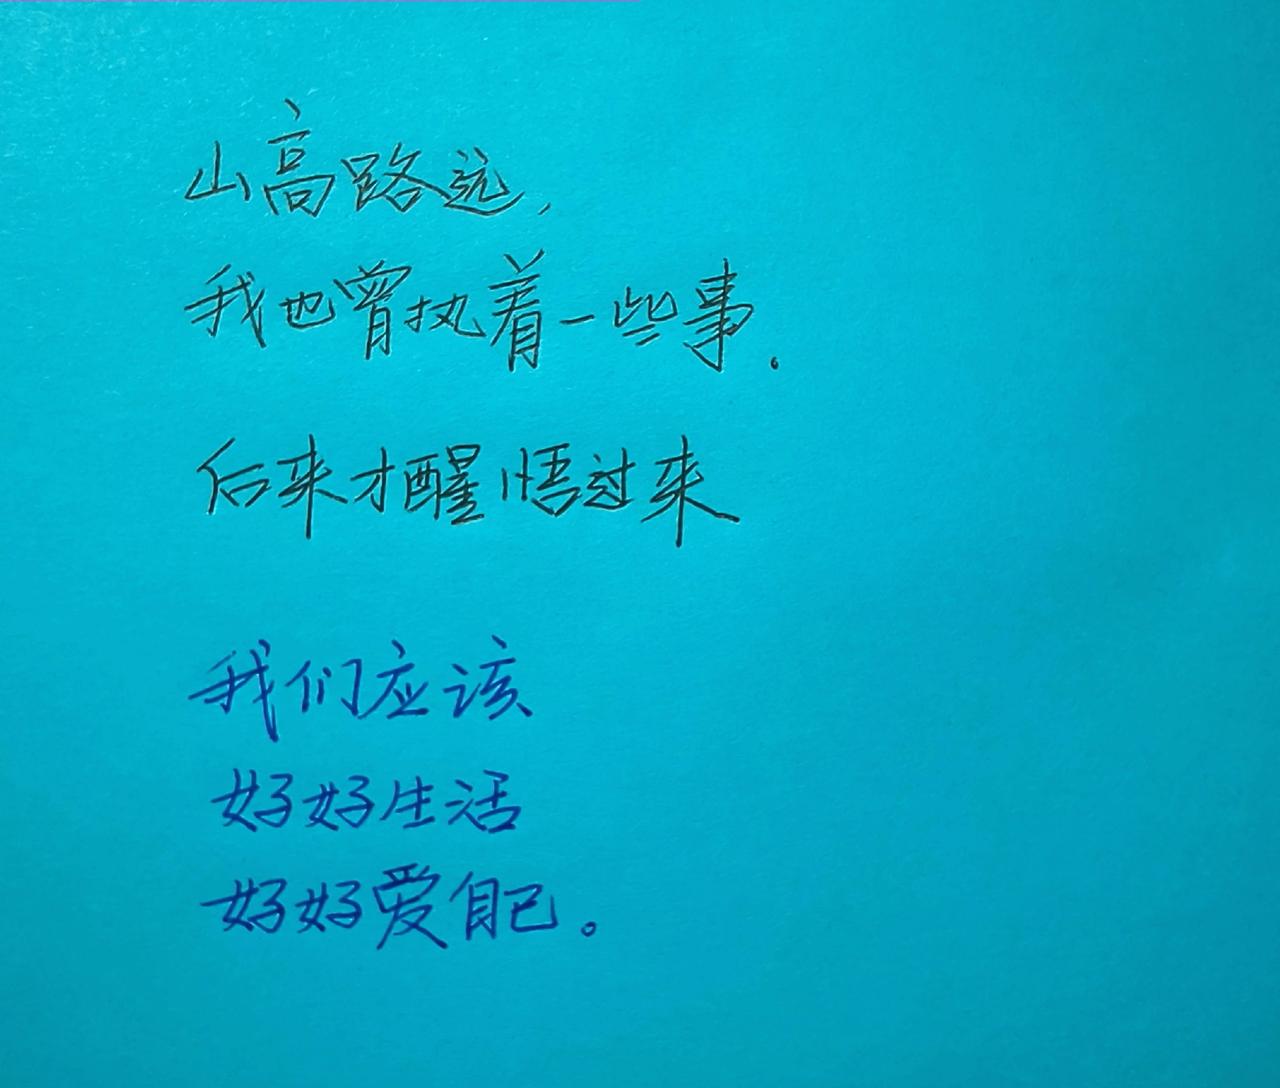 山高路远，
我也曾执着一些事。
后来才醒悟过来
我们应该
好好生活
好好爱自己。